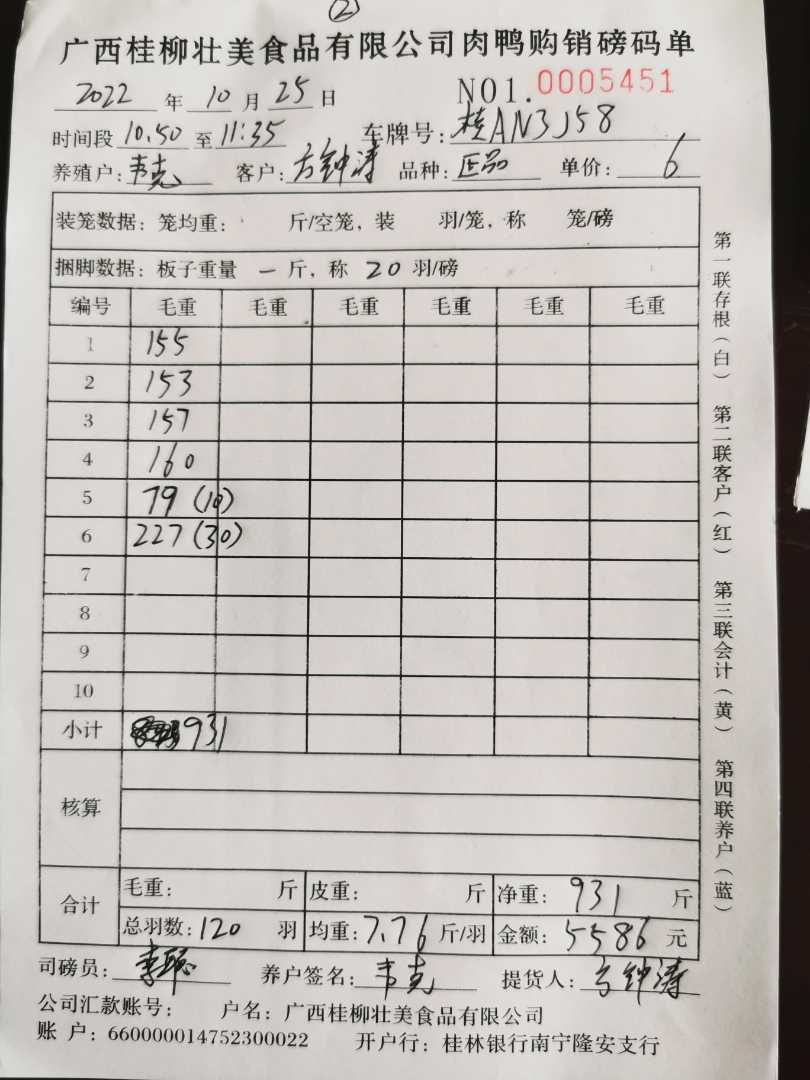 ②
广西桂柳壮美食品有限公司肉鸭购销磅码单
2022 年 10 月 25 日 NO1.0005451
时间段 10.50 至 11:35 车牌号: 桂AN3J58
养殖户: 韦克 客户: 方钟涛 品种: 正品 单价: 6
装笼数据: 笼均重: 斤/空笼, 装 羽/笼, 称 笼/磅
捆脚数据: 板子重量 一 斤, 称 20 羽/磅
编号 毛重 毛重 毛重 毛重 毛重 毛重
1 155
2 153
3 157
4 160
5 79 (10)
6 227 (30)
7
8
9
10
小计 931
核算
合计 毛重: 斤 皮重: 斤 净重: 931 斤
总羽数: 120 羽 均重: 7.76 斤/羽 金额: 5586 元
司磅员: 李聪 养户签名: 韦克 提货人: 方钟涛
公司汇款账号: 户名: 广西桂柳壮美食品有限公司
账 户: 660000014752300022 开户行: 桂林银行南宁隆安支行
第一联存根(白) 第二联客户(红) 第三联会计(黄) 第四联养户(蓝)